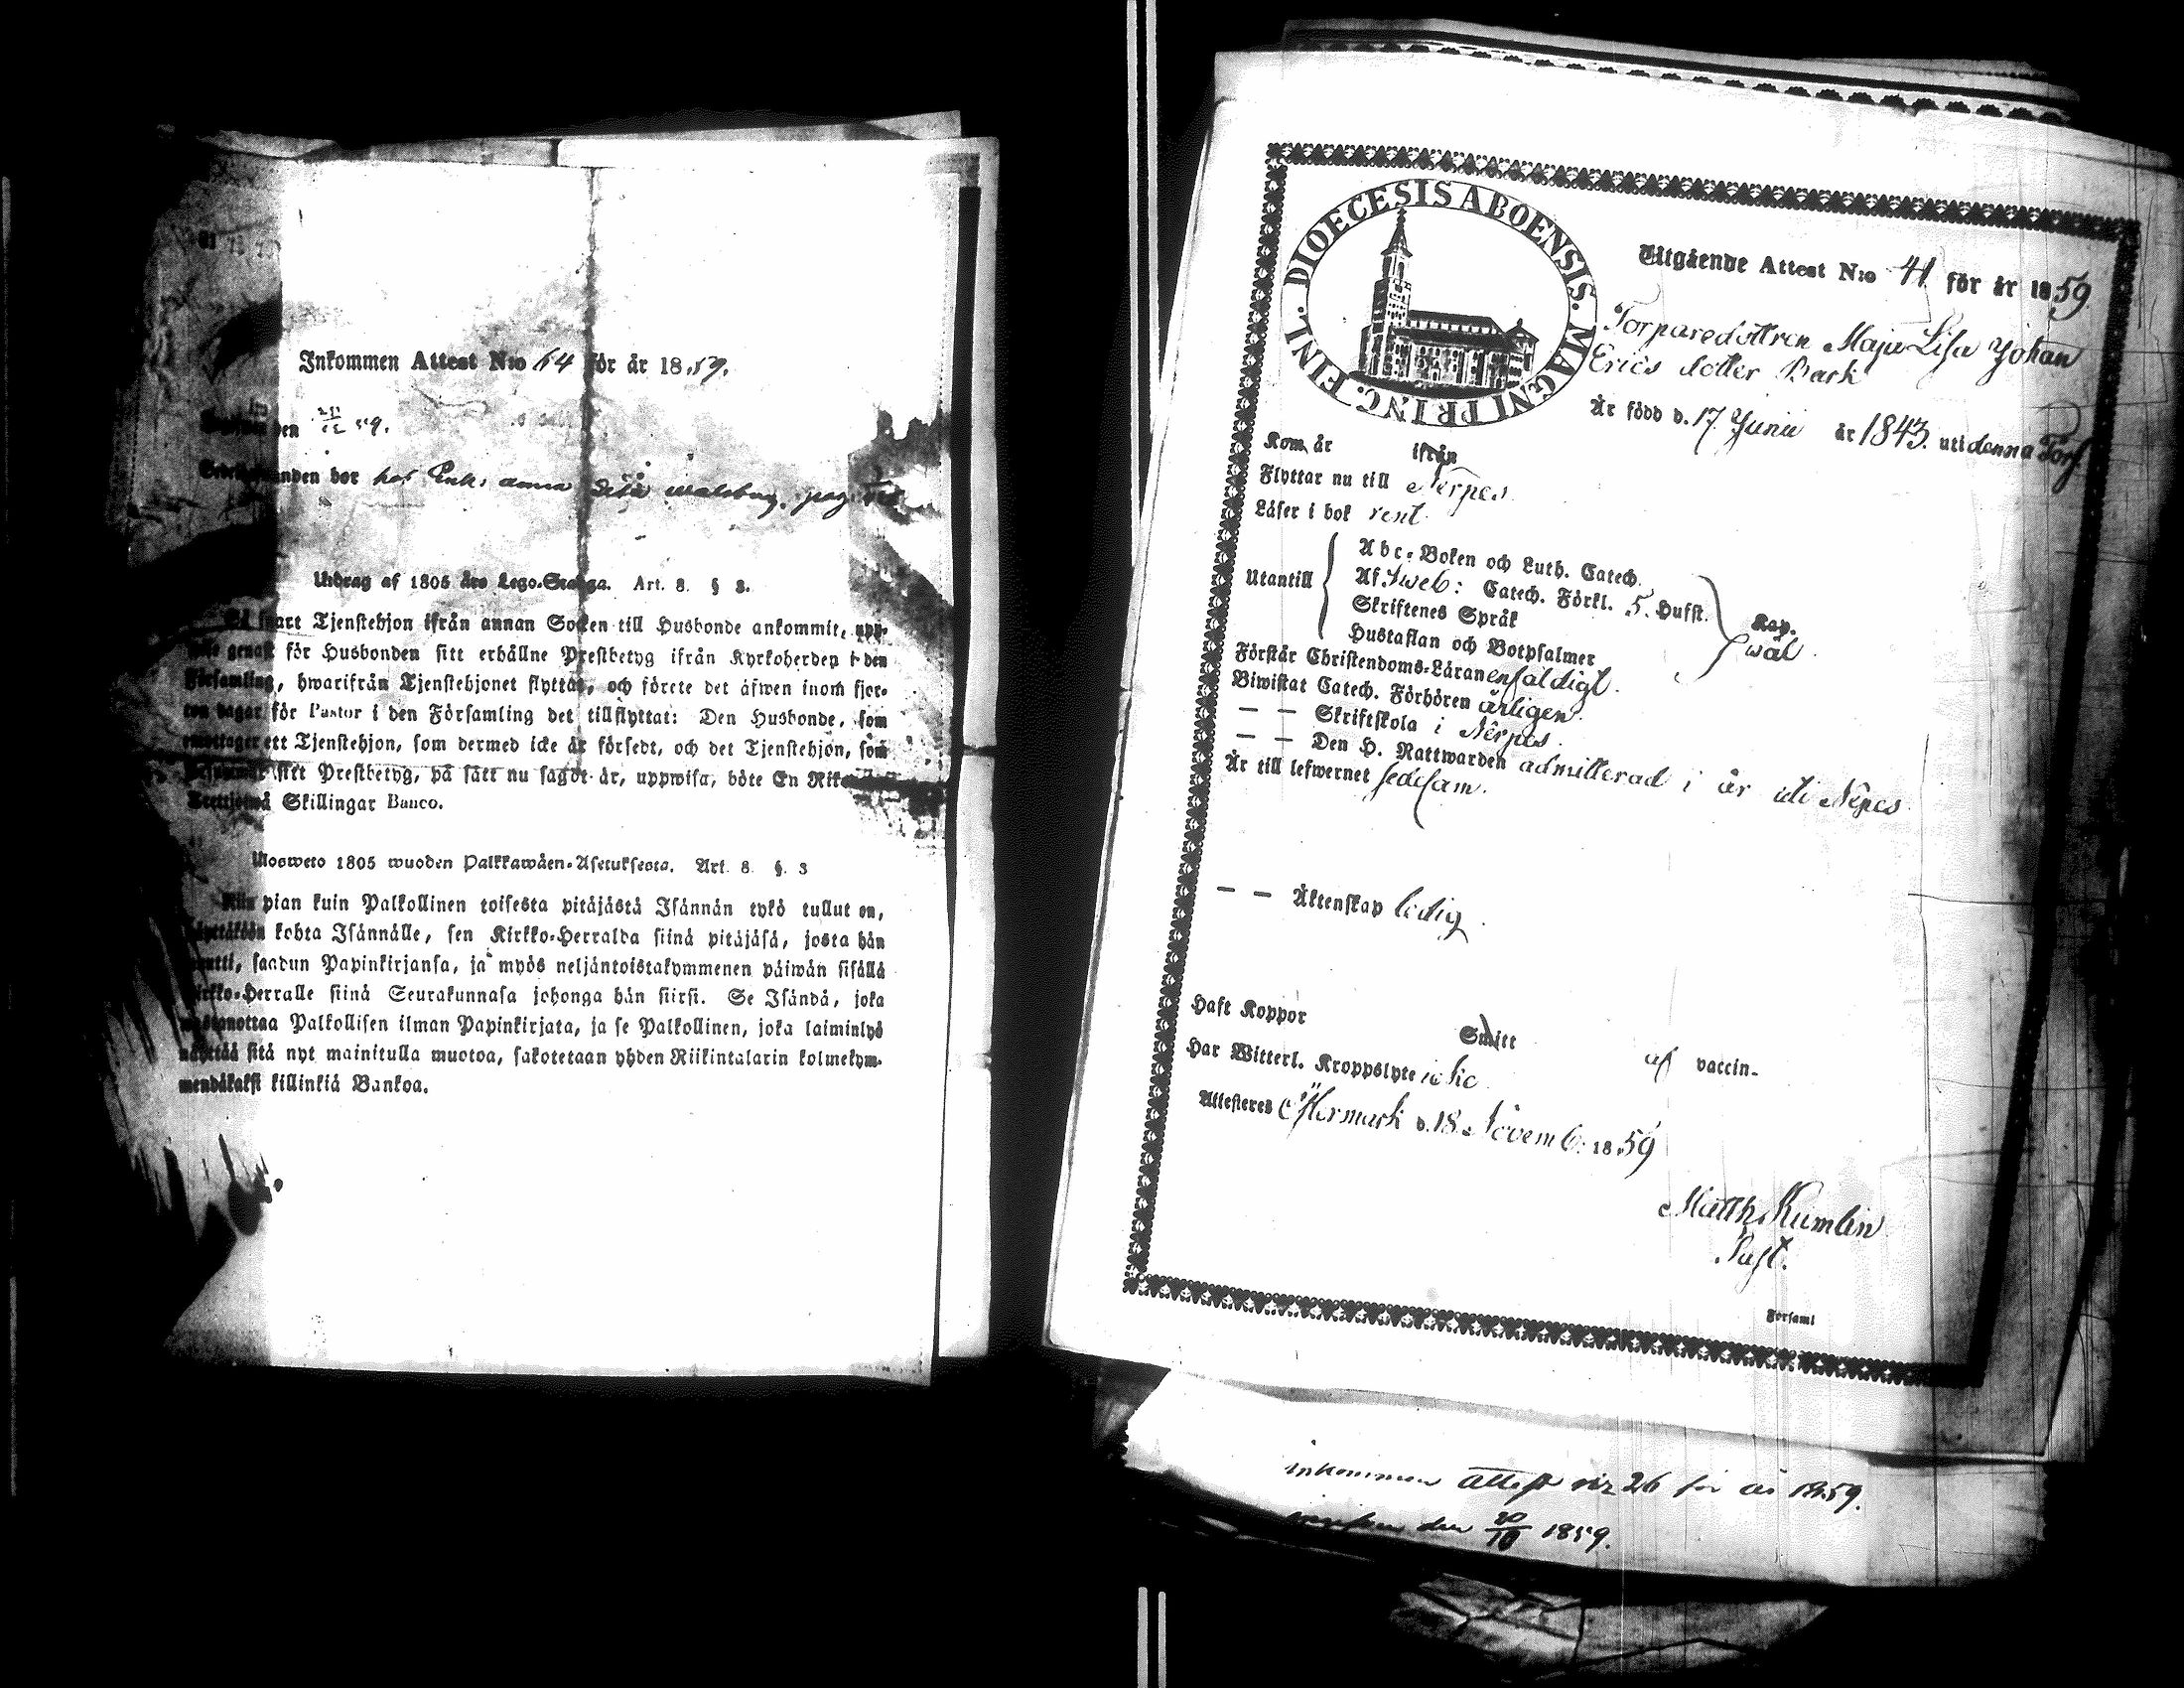 Inkommen Attest N:o 64 för år 1859.
den 59.
bor hos Enk: Anna Lisa
Utdrag af 1805 års Lego-Stadga. Art. 8. § 3.
Så snart Tjenstehjon ifrån annan Socken till Husbonde ankommit, upp-
wise genast för Husbonden sitt erhållne Prestbetyg ifrån Kyrkoherden i den
Församling, hwarifrån Tjenstehjonet flyttat, och förete det äfwen inom fjor-
ton dagar för Pastor i den Församling det tillflyttat: Den Husbonde, som
emottager ett Tjenstehjon, som dermed icke är försedt, och det Tjenstehjon, som
sitt Prestbetyg, på sätt nu sagdt är, uppwisa, böte En
Trettjotwå Skillingar Banco.
Ulosweto 1805 wuoden Palkkawäen-Asetuksesta. Art. 8. §. 3
Niin pian kuin Palkollinen toisesta pitäjästä Isännän tykö tullut on,
näyttäköön kohta Isännälle, sen Kirkko-Herralda siinä pitäjäsä, josta hän
muutti, saadun Papinkirjansa, ja myös neljäntoistakymmenen päiwän sisällä
Kirkko-Herralle siinä Seurakunnasa johonga hän siirsi. Se Isändä, joka
wastanottaa Palkollisen ilman Papinkirjata, ja se Palkollinen, joka laiminlyö
näyttää sitä nyt mainitulla muotoa, sakotetaan yhden Riikintalarin kolmekym-
mendäkaksi killinkiä Bankoa.
DIOECESIS ABOENSIS. MAGNI PRINC. FINL.
Utgående Attest N:o 41 för år 1859
Torparedottren Maja Lisa Johan
Erics dotter Bark
Är född d. 17 Junii år 1843. uti denna Förs.
Kom år ifrån
Flyttar nu till Nerpes
Läser i bok rent
Utantill
Abc-Boken och Luth. Catech.
Af Sweb: Catech. Förkl. 5. Hufst.
Skriftenes Språk
Hustaflan och Botpsalmer
Kap.
wäl.
Förstår Christendoms-Läran enfaldigt.
Biwistat Catech. Förhören årligen.
— — Skriftskola i Nerpes.
— — Den H. Nattwarden admitterad i år uti Nerpes
Är till lefwernet sedesam.
— — Äktenskap ledig.
Haft Koppor Smitt af vaccin-
Har Witterl. Kroppslyte icke
Attesteres Östermark d. 18 Novemb: 1859
Matth Kumlin
Past.
Forsaml
inkommen attest nr 26 för år 1859.
den 20/10 1859.